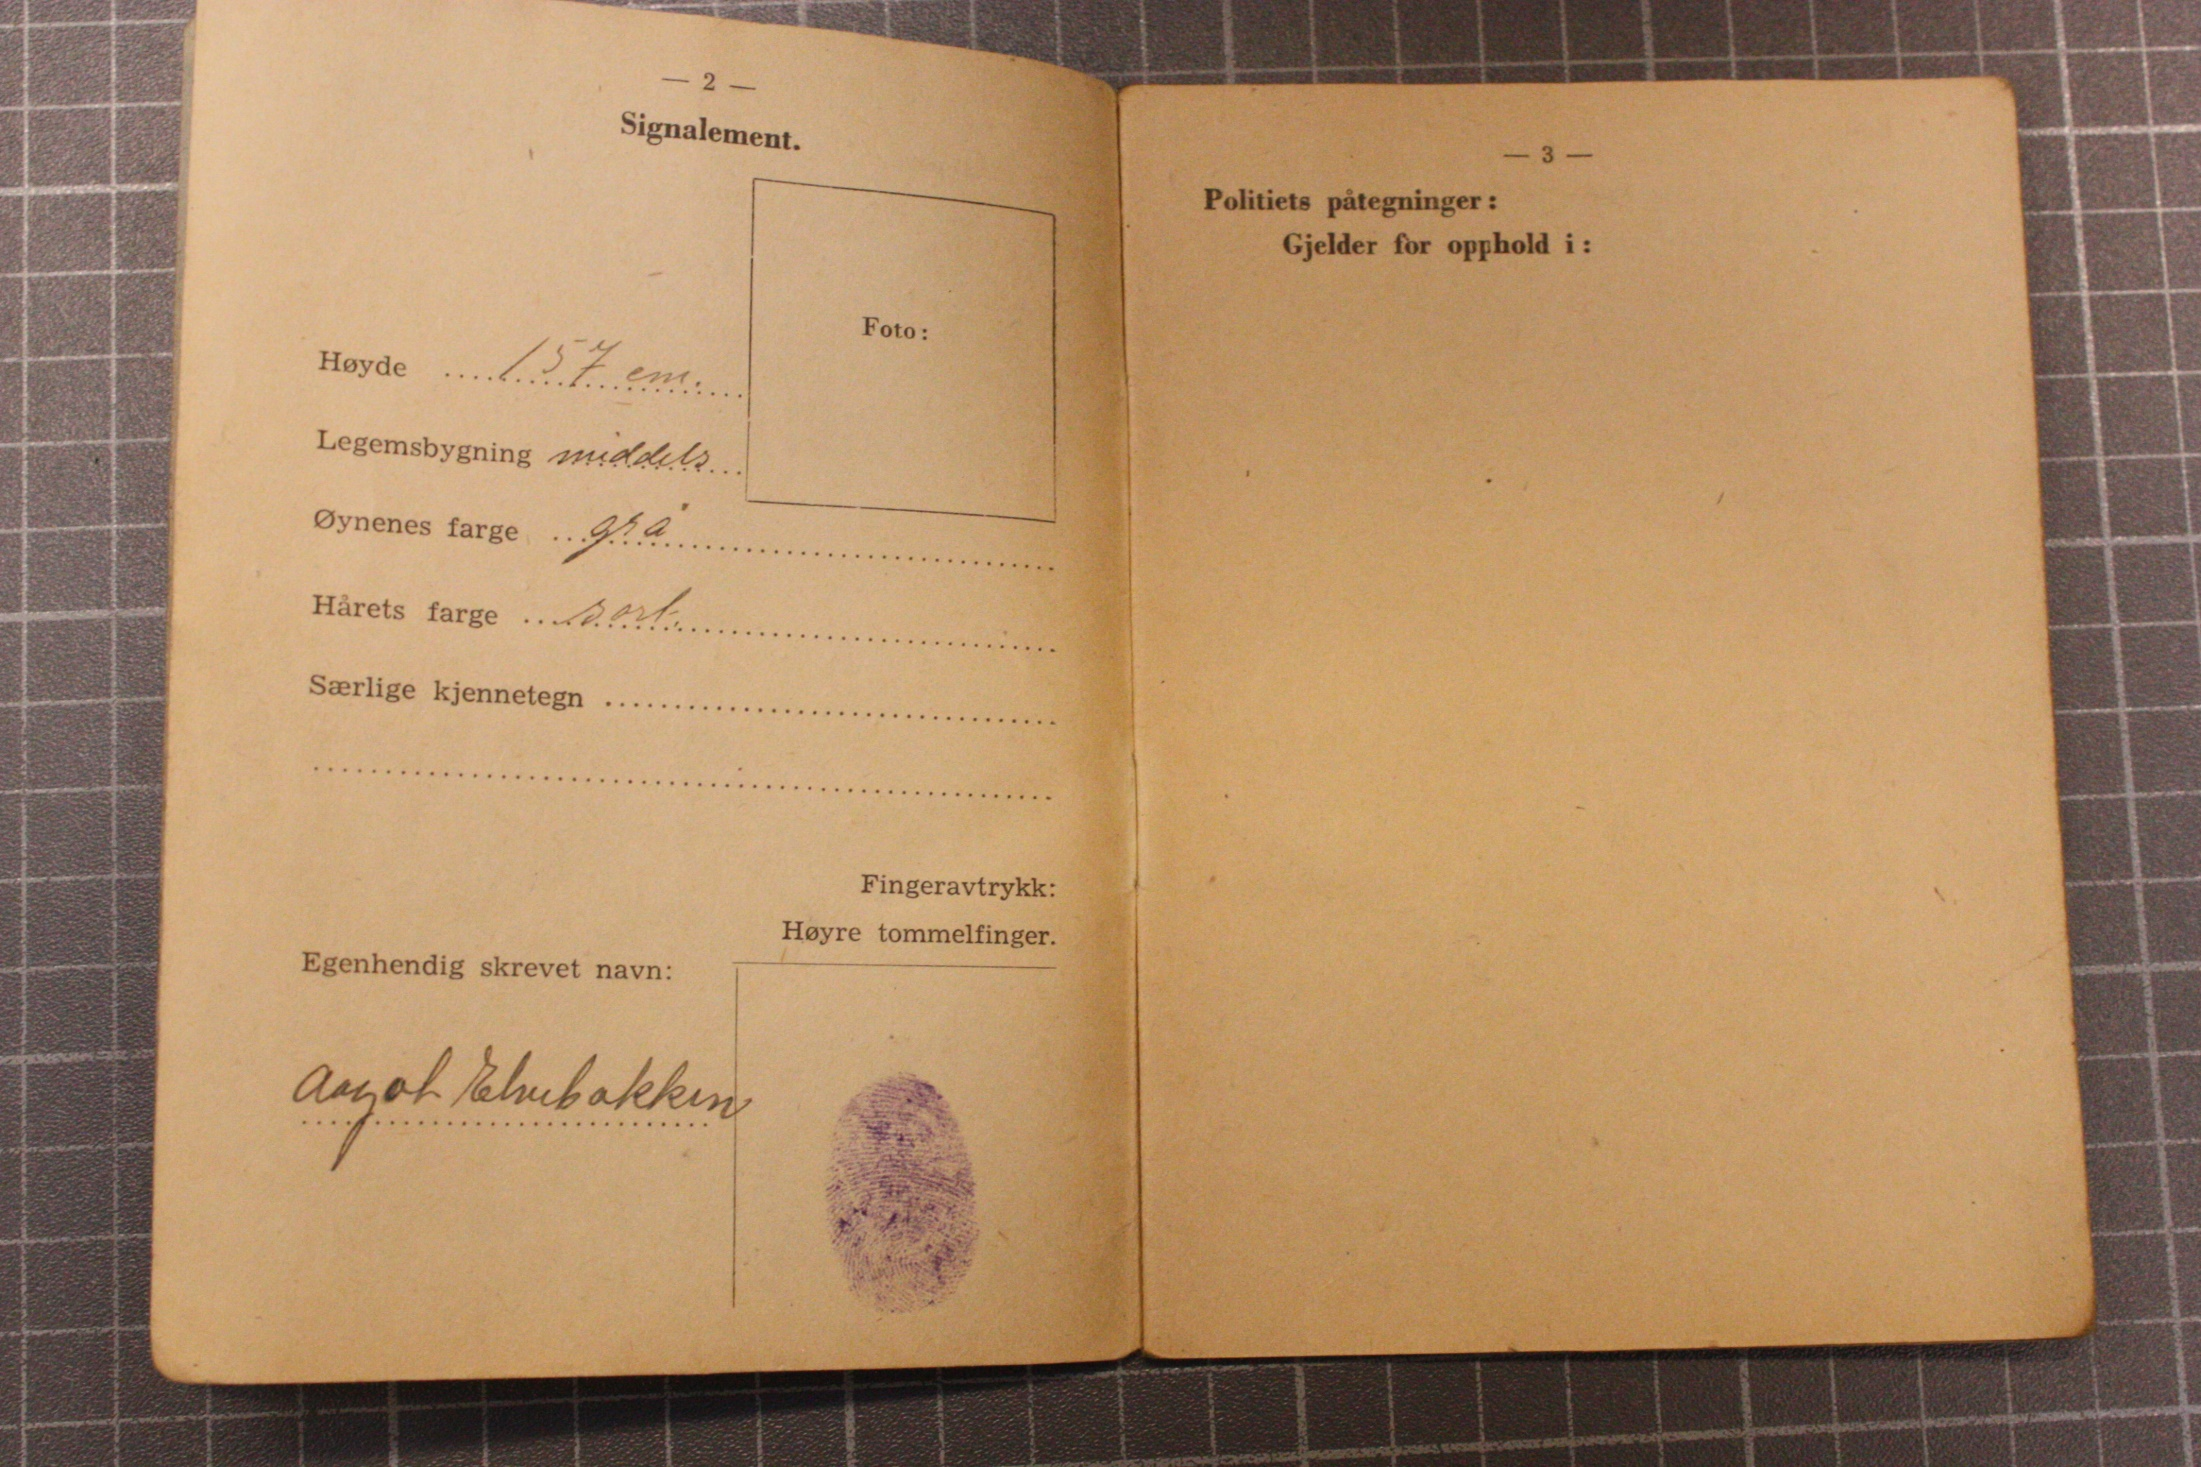 — 2 —
Signalement.
Foto:
Høyde .... 157 cm.
Legemsbygning middels
Øynenes farge ... grå
Hårets farge ... sort.
Særlige kjennetegn
Fingeravtrykk:
Høyre tommelfinger.
Egenhendig skrevet navn:
Aagot Elvebakken
— 3 —
Politiets påtegninger:
Gjelder for opphold i: